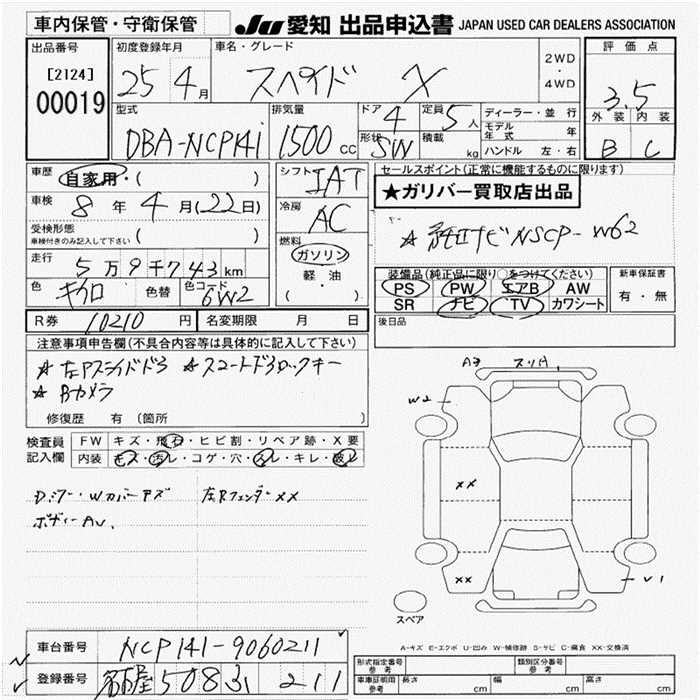 車内保管・守衛保管
JU 愛知 出品申込書 JAPAN USED CAR DEALERS ASSOCIATION
出品番号
[2124]
00019
初度登録年月
25 4月
車名・グレード
スペイド X
2WD
・
4WD
評価点
3.5
外装 内装
B C
型式
DBA-NCP141
排気量
1500 cc
ドア
4
形状
SW
定員
5人
積載
kg
ディーラー・並行
モデル年式 年
ハンドル 左・右
車歴
自家用・( )
車検
8年 4月(22日)
受検形態
車検付きのみ記入して下さい ( )
走行
5万9千743km
色
キクロ
色替
色コード
6W2
シフト
IAT
冷房
AC
燃料
ガソリン
軽・油
( )
セールスポイント(正常に機能するものに限ります)
★ガリバー買取店出品
☆純正ナビ NSCP-W62
装備品(純正品に限り○をつけてください)
PS PW エアB AW
SR ナビ TV カワシート
新車保証書
有・無
後日品
R券 10210円
名変期限 月 日
注意事項申告欄(不具合内容等は具体的に記入して下さい)
☆左Pスライドドア ☆スマートドアロックキー
☆Bカメラ
修復歴 有 (箇所 )
検査員
記入欄
FW キズ・飛石・ヒビ割・リペア跡・X要
内装 キズ・汚レ・コゲ・穴・スレ・キレ・破レ
左Rフェンダーxx
A3
W2
xx
xx
V1
スペア
A-キズ E-エクボ U-凹み W-補修跡 S-サビ C-腐食 XX-交換済
車台番号
NCP141-9060211
登録番号
503 211
形式指定番号
参考
類別区分番号
参考
車庫証明用
参考
長さ cm
幅 cm
高さ cm